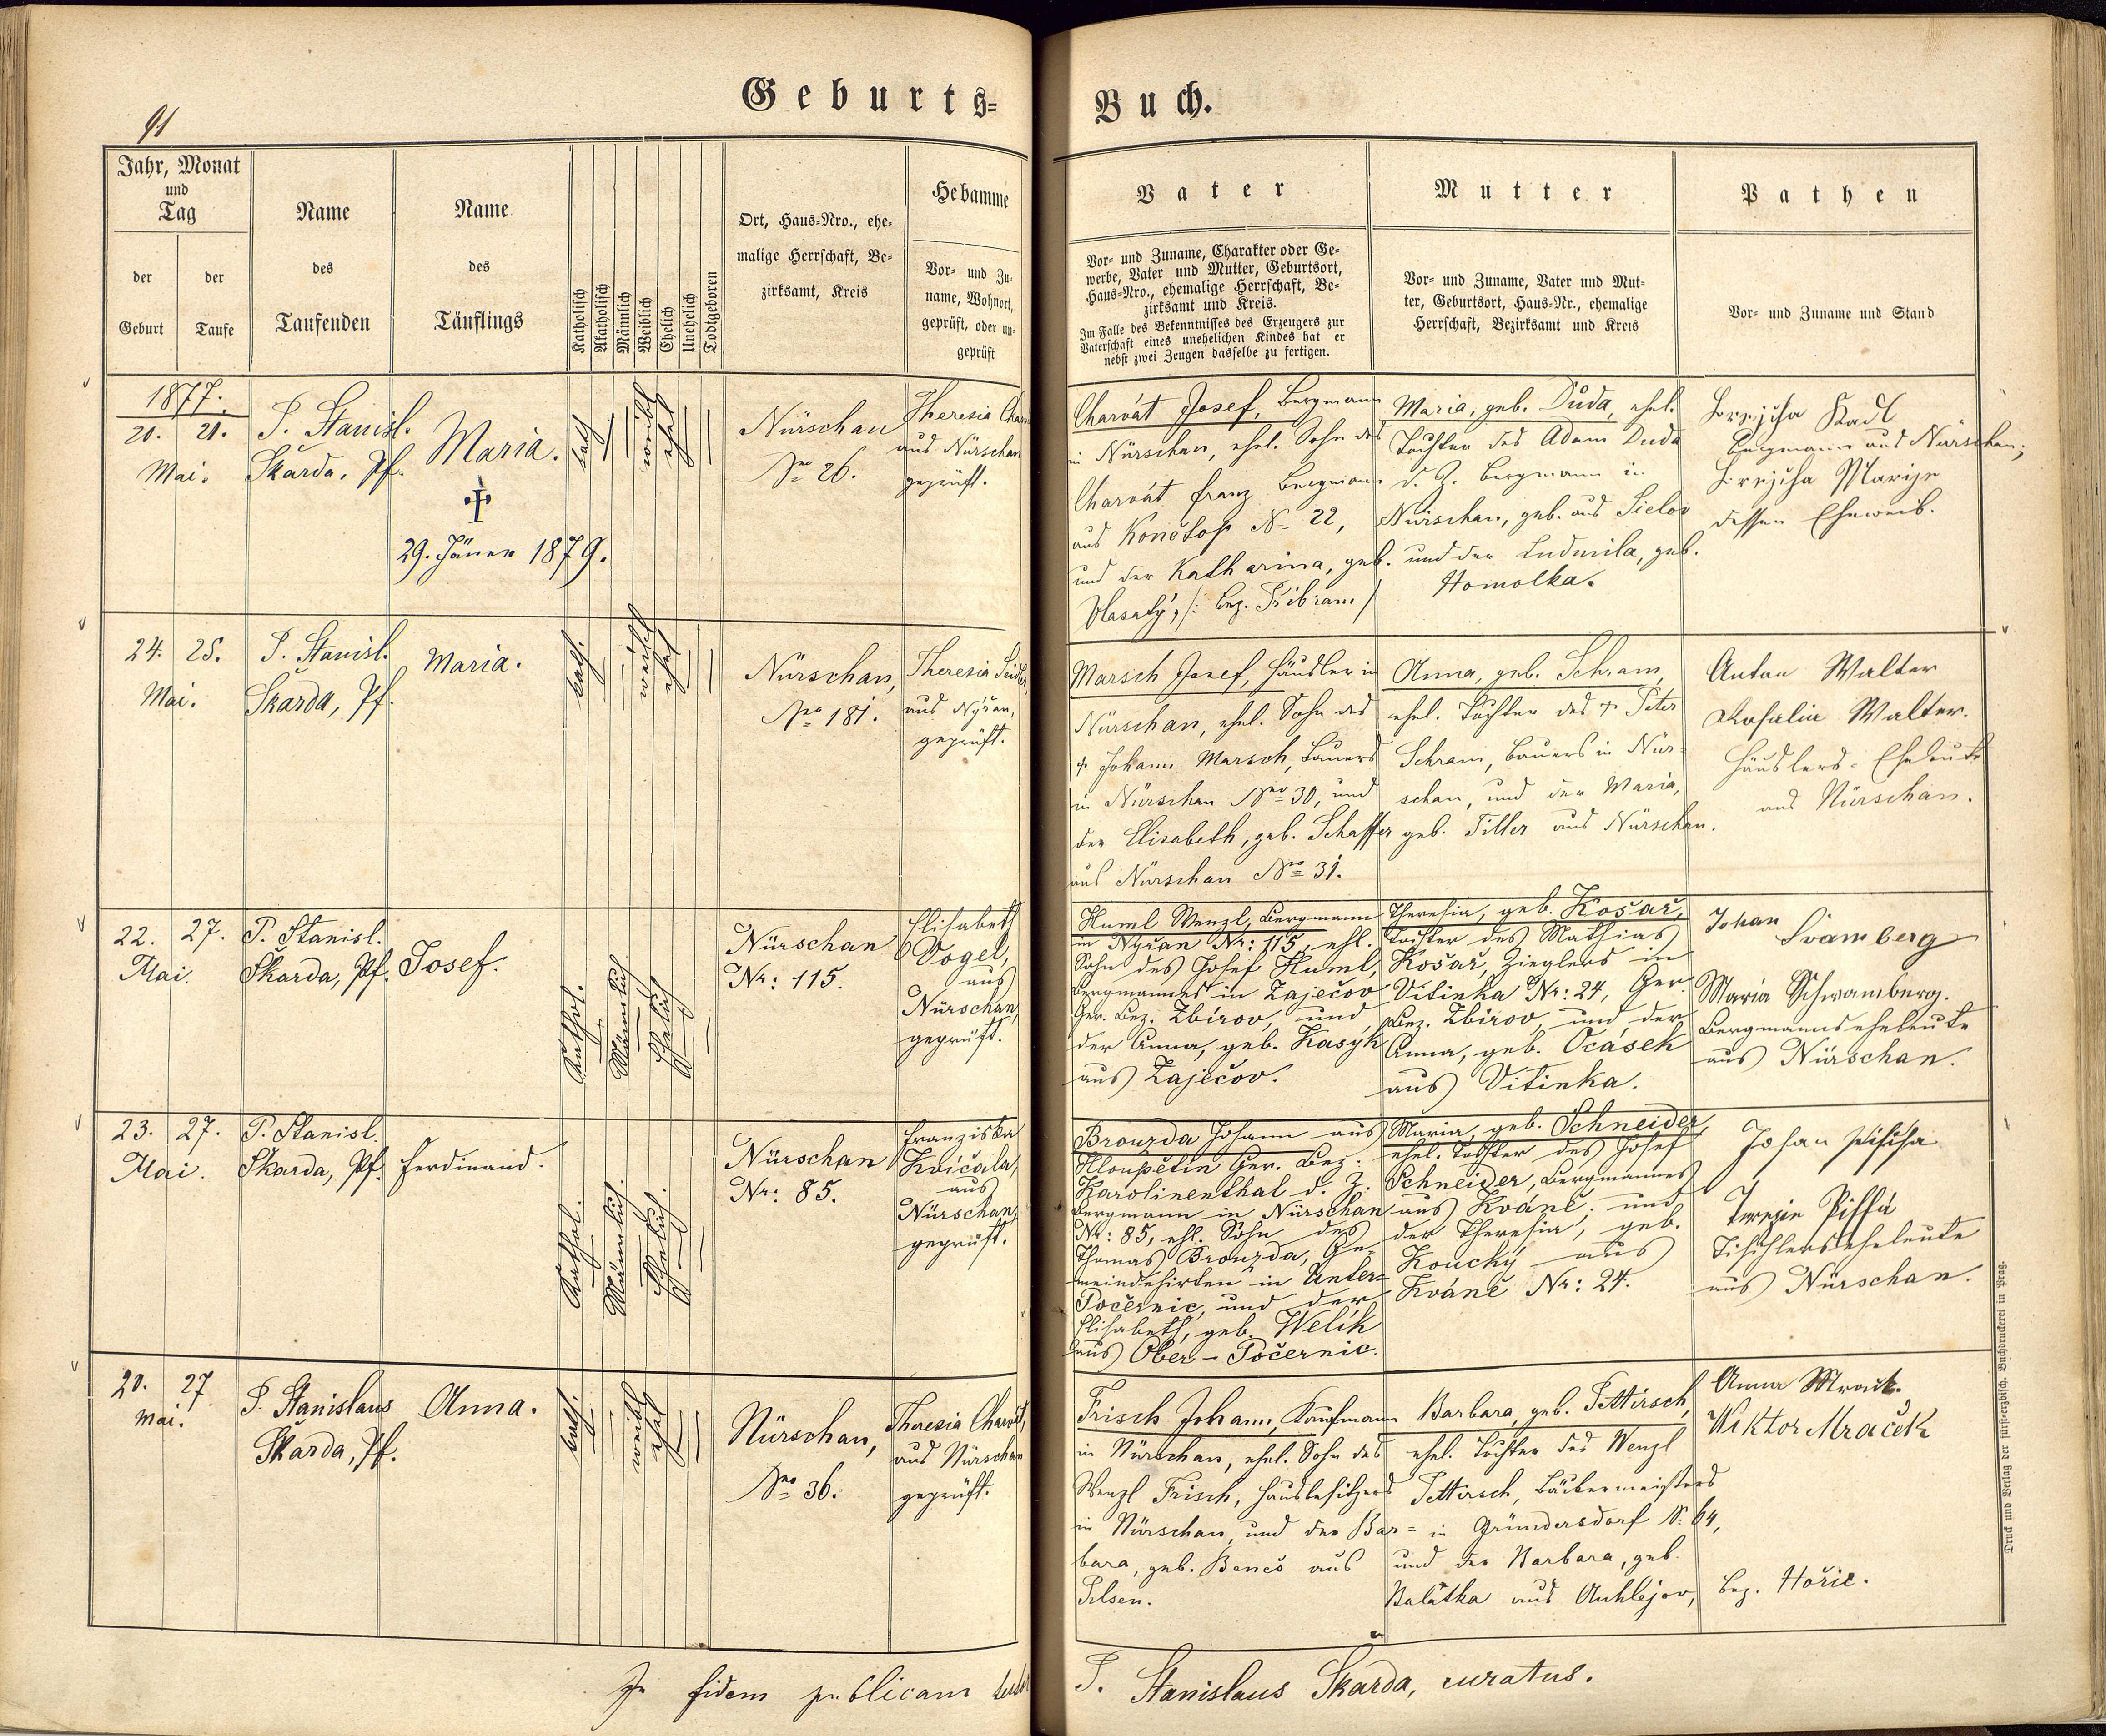 91
Geburts=
Buch.
Jahr, Monat
und
Tag
der
Geburt
der
Taufe
Name
des
Taufenden
Name
des
Täuflings
Katholisch
Akatholisch
Männlich
Weiblich
Ehelich
Unehelich
Todtgeboren
Ort, Haus-Nro., ehe-
malige Herrschaft, Be-
zirksamt, Kreis
Hebamme
Vor- und Zu-
name, Wohnort,
geprüft, oder un-
geprüft
Vater
Vor- und Zuname, Charakter oder Ge-
werbe, Vater und Mutter, Geburtsort,
Haus-Nro., ehemalige Herrschaft, Be-
zirksamt und Kreis.
Im Falle des Bekenntnisses des Erzeugers zur
Vaterschaft eines unehelichen Kindes hat er
nebst zwei Zeugen dasselbe zu fertigen.
Mutter
Vor- und Zuname, Vater und Mut-
ter, Geburtsort, Haus-Nr., ehemalige
Herrschaft, Bezirksamt und Kreis
Pathen
Vor- und Zuname und Stand
1877.
20. 21.
Mai.
P. Stanisl.
Škarda, Pf.
Maria.
29. Jäner 1879.
kath
weibl
ehel
Nürschan
Nro 26.
Theresia
aus Nürschan
geprüft.
Charvát Josef, Bergmann
in Nürschan, ehel. Sohn des
Charvát Franz Bergmann
aus Konětop N- 22,
und der Katharina, geb.
Vlasatý, /: Bez. Přibram /
Maria, geb. Důda, ehel.
Tochter des Adam Duda
d. Z. Bergmann in
Nürschan, geb. aus
und der Ludmila, geb.
Homolka.
Bergmann aus Nürschan;
Marije
dessen Eheweib.
24. 25.
Mai.
P. Stanisl.
Škarda, Pf.
Maria.
kath.
weibl
ehel
Nürschan,
Nro 181.
Theresia
aus Nýřan,
geprüft.
Marsch Josef, Häusler in
Nürschan, ehel. Sohn des
† Johann Marsch, Bauers
in Nürschan Nro 30, und
der Elisabeth, geb. Schaffer
aus Nürschan Nro 31.
Anna, geb. Schram,
ehel. Tochter des † Peter
Schram, Bauers in Nür-
schan, und der Maria,
geb. Tiller aus Nürschan.
Anton Walter
Rosalia Walter.
Häuslers-Eheleute
aus Nürschan.
22. 27.
Mai.
P. Stanisl.
Škarda, Pf.
Josef.
Kathol.
Männlich
Ehelich
Nürschan
Nr: 115.
Elisabeth
Vogel,
aus
Nürschan,
geprüft.
Huml Wenzl, Bergmann
in Nýřan Nr: 115, ehl.
Sohn des Josef Huml,
Bergmannes in Zaječov
Ger. Bez. Zbirov, und
der Anna, geb. Kasyk
aus Zaječov.
Theresia, geb. Košař,
Tochter des Mathias
Košař, Zieglers in
Vitinka Nr: 24, Ger.
Bez. Zbirov, und der
Anna, geb. Ocásek
aus Vitinka.
Johan
Švamberg
Maria Schwamberg.
Bergmannseheleute
aus Nürschan.
23. 27.
Mai.
P. Stanisl.
Škarda, Pf.
Ferdinand.
Kathol.
Männlich.
Ehelich.
Nürschan
Nr: 85.
Franziska
Kvičala,
aus
Nürschan,
geprüft.
Brouzda Johann aus
Hloupětin Ger. Bez.
Karolinenthal d. Z.
Bergmann in Nürschan
Nr: 85, ehl. Sohn des
Thomas Brouzda, Ge-
meindehirten in Unter-
Počernic, und der
Elisabeth, geb. Welik
aus Ober-Počernic.
Maria, geb. Schneider,
ehel. Tochter des Josef
Schneider, Bergmannes
aus Kváně. und
der Theresia, geb.
Koucký aus
Kváně Nr: 24.
Johan
Terezie
Tischlerseheleute
aus Nürschan.
20. 27
Mai.
P. Stanislaus
Škarda, Pf.
Anna.
kath.
weibl
ehel
Nürschan,
Nro 36.
Theresia Charvát,
aus Nürschan
geprüft.
Frisch Johann, Kaufmann
in Nürschan, ehel. Sohn des
Wenzl Frisch, Hausbesitzers
in Nürschan, und der Bar=
bara, geb. Beneš aus
Pilsen.
Barbara, geb. Pettirsch,
ehel. Tochter des Wenzl
Pettirsch, Bäckermeisters
in Gründersdorf N. 64,
und der Barbara, geb.
Balatka aus Auhlejov, Bez. Hořic.
Anna
Wiktor Mraček
In fidem publicam
P. Stanislaus Škarda, curatus.
Druck und Verlag der fürsterzbisch. Buchdruckerei in Prag.